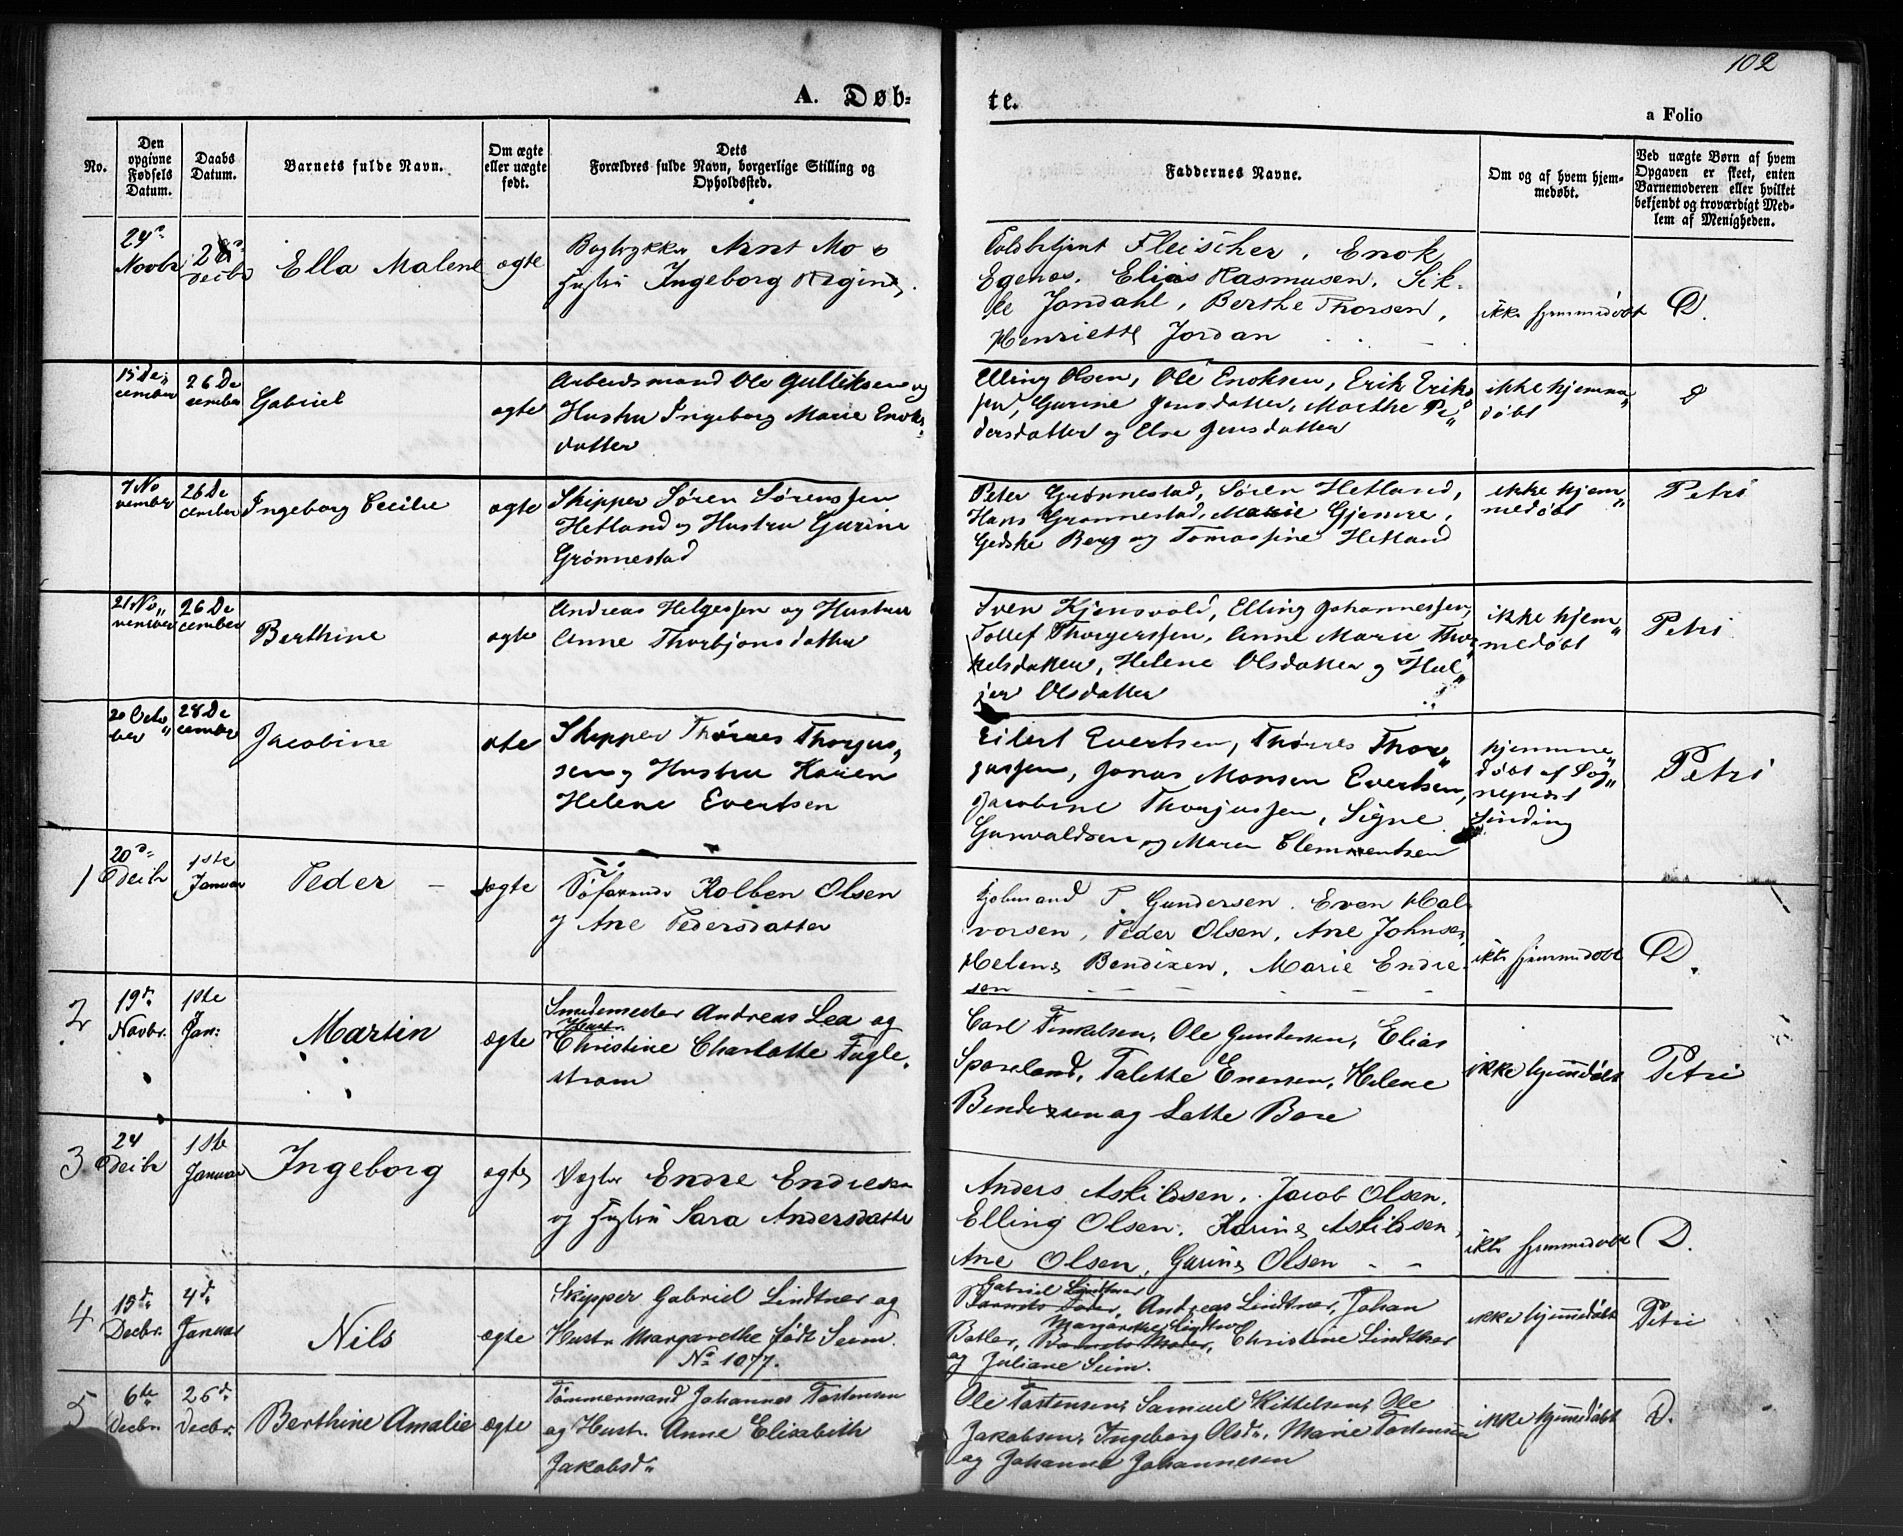 102
A. Døb-
te.
a Folio
No.
Den opgivne Fødsels Datum.
Daabs Datum.
Barnets fulde Navn.
Om ægte eller uægte født.
Dets
Forældres fulde Navn, borgerlige Stilling og
Opholdssted.
Faddernes Navne.
Om og af hvem hjem-
medøbt.
Ved uægte Børn af hvem
Opgaven er skeet, enten
Barnemoderen eller hvilket
bekjendt og troværdigt Med-
lem af Menigheden.
24de
Novbr
Decbr
Ella Malene
ægte
Bogtrykker Arnt Mo &
Hustru Ingeborg Regine.
Toldbetjent Fleischer, Enok
Egenæs, Elias Rasmusen, Sik-
ke Jondahl, Berthe Thorsen,
Henriette Jordan
ikke hjemmedøbt
D.
15 De„
cember
26 De
cember
Gabriel
ægte
Arbeidsmand Ole Gulliksen og
Hustru Ingeborg Marie Enoks
datter
Elling Olsen, Ole Enoksen, Erik Erik„
sen, Gurine Jensdatter, Marthe Pe„
dersdatter og Else Jensdatter
ikke hjemme„
døbt
D
7 No
vember
26 De
cember
Ingeborg Cecilie
ægte
Skipper Søren Sørenssen
Hetland og Hustru Gurine
Grønnestad
Peter Grønnestad, Søren Hetland,
Hans Grønnestad, Marie Gjemre,
Gedske Berg og Tomassine Hetland
ikke hjem„
medøbt
Petri
21 No„
vember
26 De
cember
Berthine
ægte
Andreas Helgessen og Hustru
Anne Thorbjønsdatter
Sven Kjensvold, Elling Johannessen,
Tollef Thorgerssen, Anne Marie Thor„
kelsdatter, Helene Olsdatter og Hel„
jer Olsdatter
ikke hjem„
medøbt
Petri
20 Octo„
ber
28 De
cember
Jacobine
ægte
Skipper Thørres Thorjus„
sen og Hustru Karen
Helene Evertsen
Eilert Evertsen, Thørres Thor„
jussen, Jonas Monsen Evertsen,
Jacobine Thorjussen, Signe
Gunvaldsen og Maren Clemmentsen
hjemme„
døbt af Sog„
nepræst
Sinding
Petri
1
20de
Decbr
1ste
Januar
Peder
ægte
Søfarende Kolben Olsen
og Ane Pedersdatter
Kjøbmand T. Gundersen, Even Hal-
vorsen, Peder Olsen, Ane Johnsen,
Helene Bendixen, Marie Endre-
sen
ikke hjemmedøbt
D.
2
19de
Novbr.
1ste
Jan:
Martin
ægte
Smedemester Andreas Lea og
Hustr.
Christine Charlotte Fugle-
strøm
Carl Finkelsen, Ole Gundersen, Elias
Spaneland, Talette Enersen, Helene
Bendixsen og Lotte Bore
ikke hjemmedøbt
Petri
3
24
Decbr
1ste
Januar
Ingeborg
ægte
Vægter Endre Endresen
og Hustru Sara Andersdatter
Anders Askildsen, Jacob Olsen,
Elling Olsen, Karine Askildsen,
Ane Olsen, Gurine Olsen
ikke hjemmedøbt
D.
4
15de
Decbr.
4de
Januar
Nils
ægte
Skipper Gabriel Lindtner og
Hustr. Margarethe født Seim.
No 1077.
Gabriel Lindtner
Barnets Fader, Andreas Lindtner, Johan
Margarethe Lindtner
Batler, Barnets Moder, Christine Lindtner
og Juliane Seim.
ikke hjemmedøbt
Petri
5
6te
Decbr.
26de
Decbr.
Berthine Amalie
ægte
Tømmermand Johannes Tostensen
og Hustr. Anne Elisabeth
Jakobsdr
Ole Tostensen, Samuel Kittelsen, Ole
Jakobsen, Ingeborg Olsdr, Marie Tostensen
og Johanne Johannesen
ikke hjemmedøbt
D.